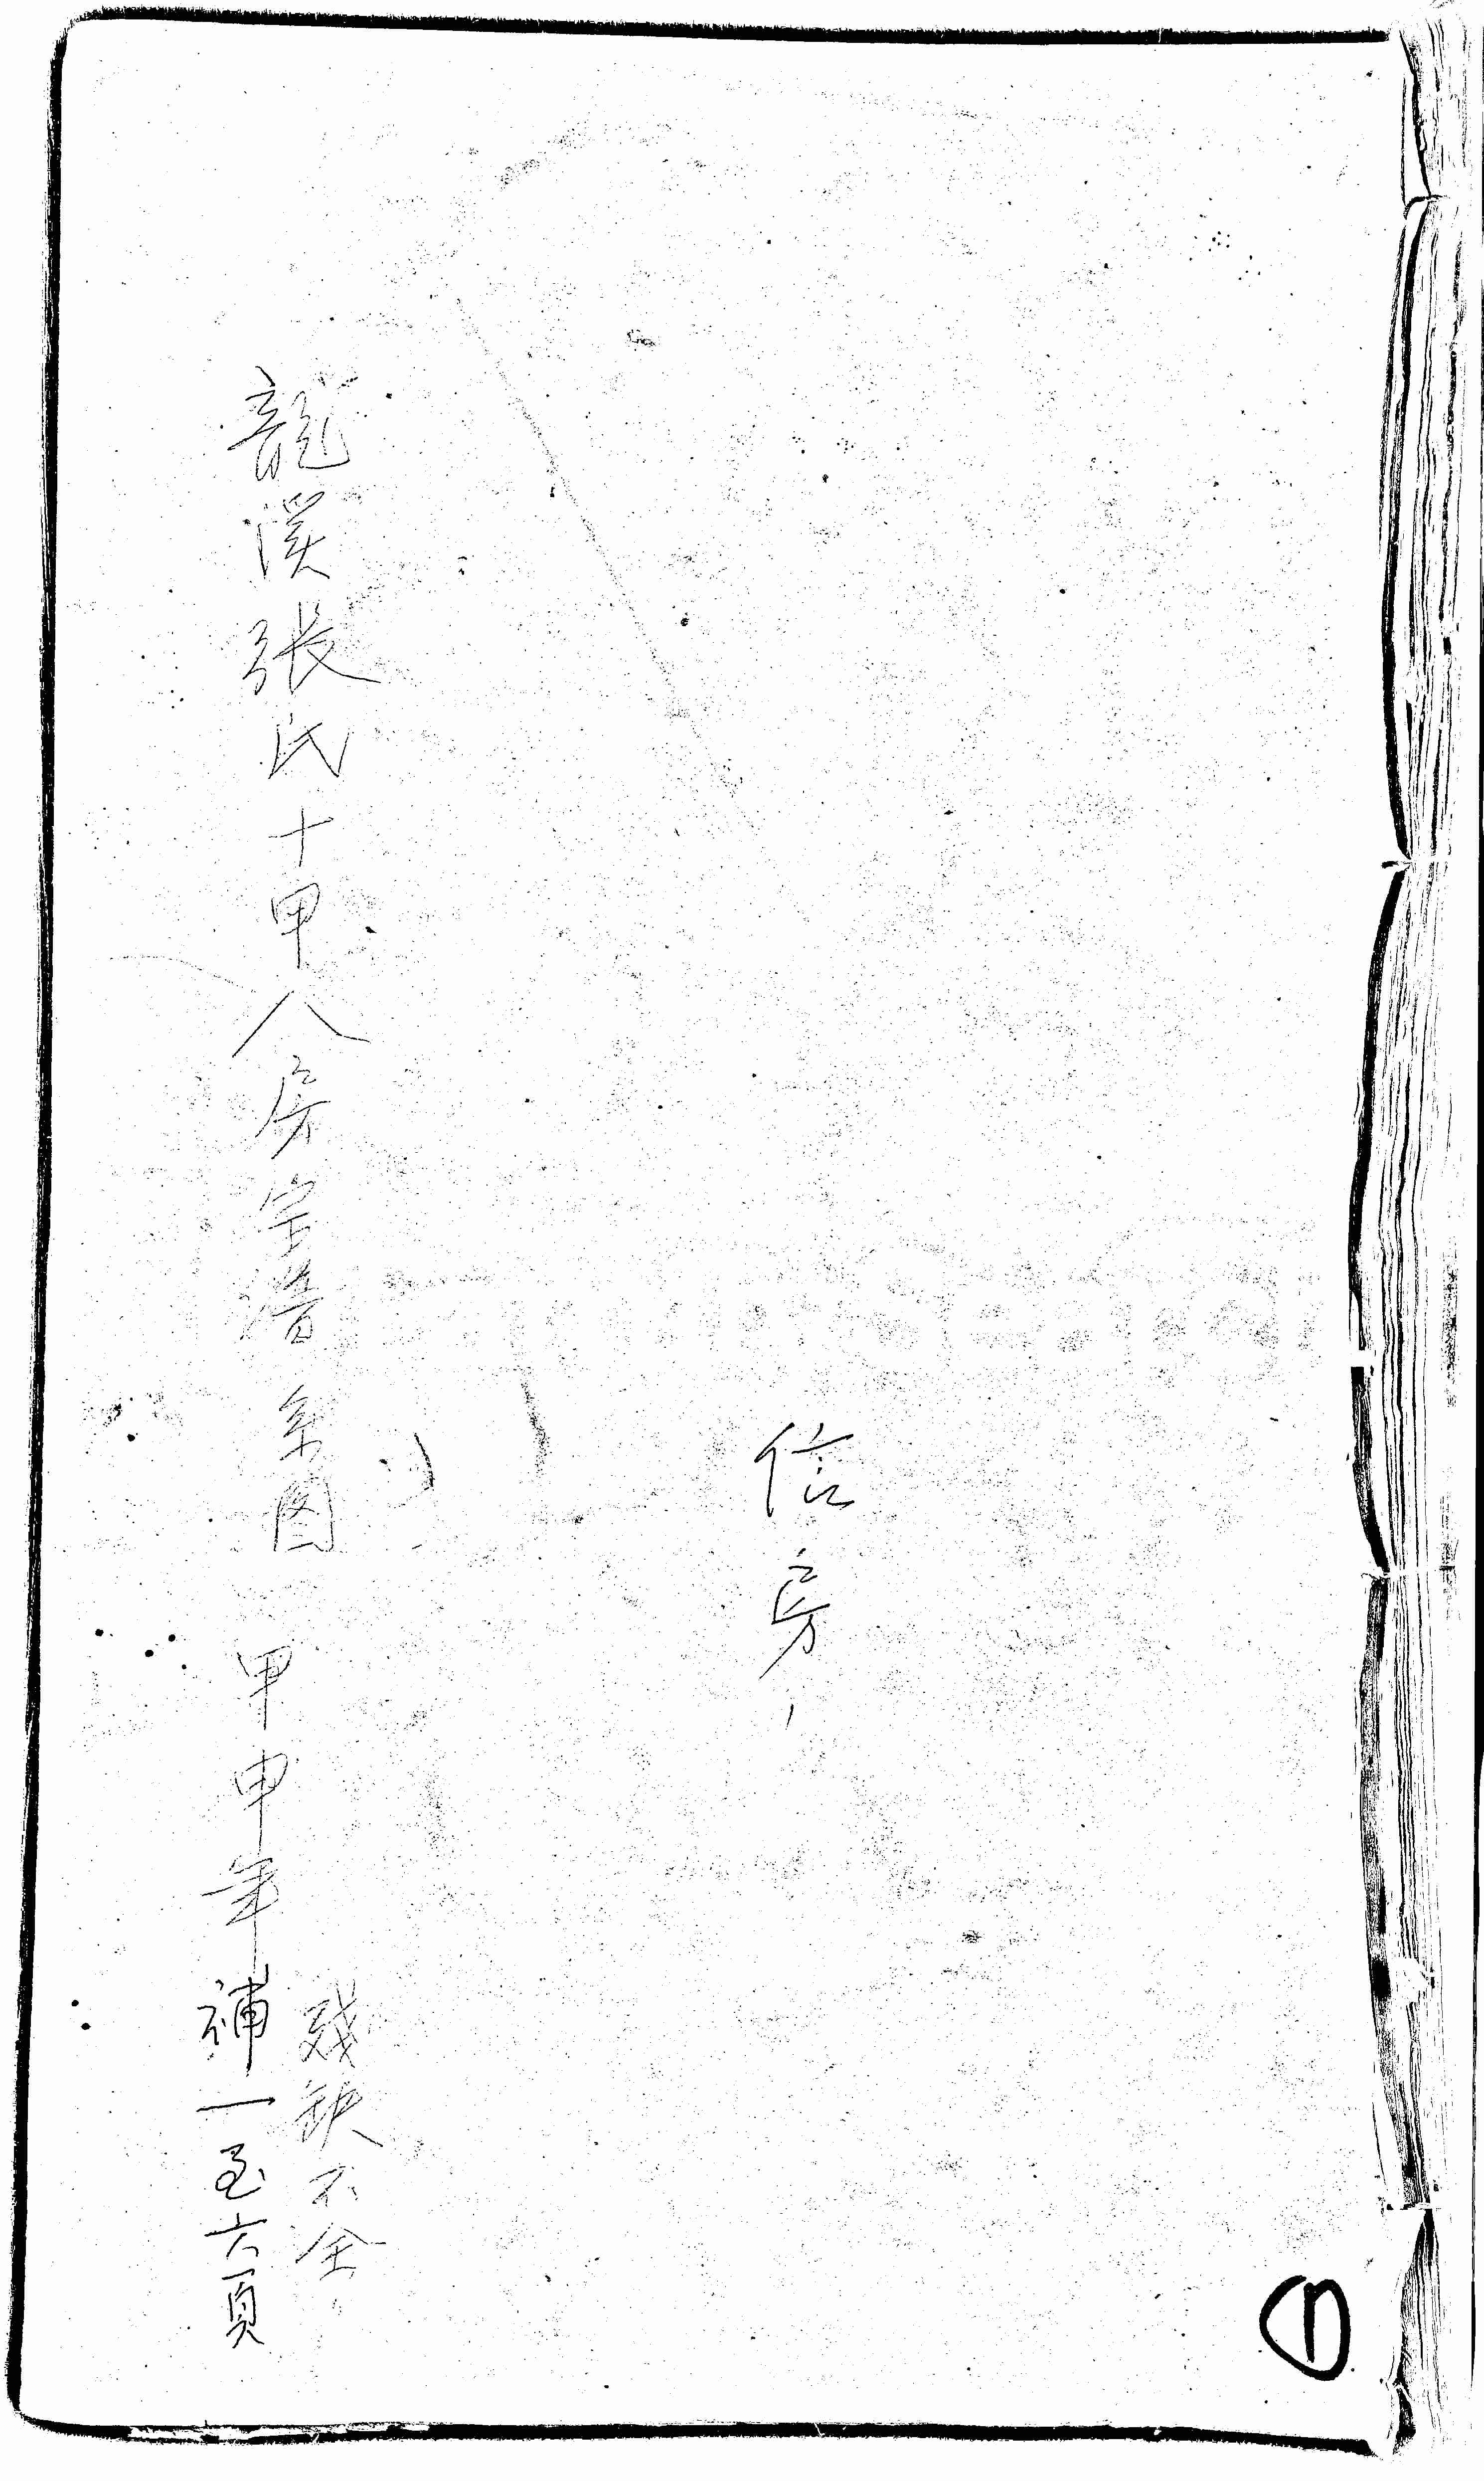 信房
龍溪張氏十甲八房宝谱系图
残缺不全
甲申年補一至六頁
①